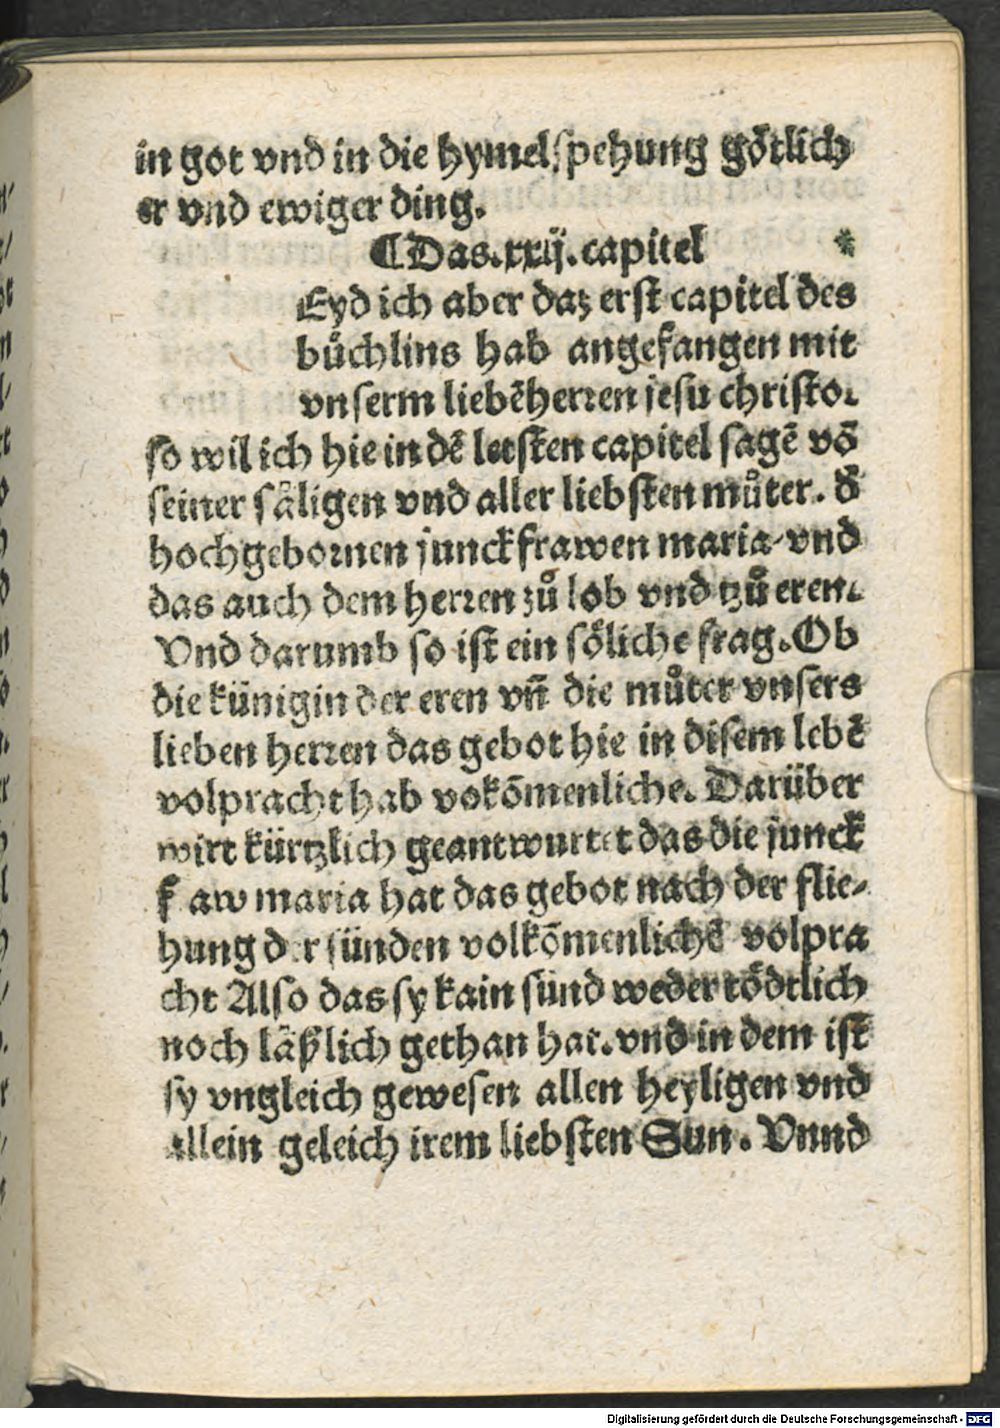 in got vnd in die hymelspehung götlich
er vnd ewiger ding.
¶ Das .xxij. capitel
Eyd ich aber daz erst capitel des
bůchlins hab angefangen mit
vnserm liebē herren jesu christo.
so wil ich hie in dē letsten capitel sagē vō
seiner säligen vnd aller liebsten můter. d̄
hochgebornen junckfrawen maria vnd
das auch dem herren zů lob vnd tzů eren.
Vnd darumb so ist ein söliche frag. Ob
die künigin der eren vn̄ die můter vnsers
lieben herren das gebot hie in disem lebē
volpracht hab vokōmenliche. Darüber
wirt kürtzlich geantwurtet das die junck
f aw maria hat das gebot nach der flie-
hung der sünden volkōmenlichē volpra
cht Also das sy kain sünd weder tödtlich
noch läßlich gethan hat. vnd in dem ist
sy vngleich gewesen allen heyligen vnd
allein geleich irem liebsten Sun. Vnnd
Digitalisierung gefördert durch die Deutsche Forschungsgemeinschaft - DFG